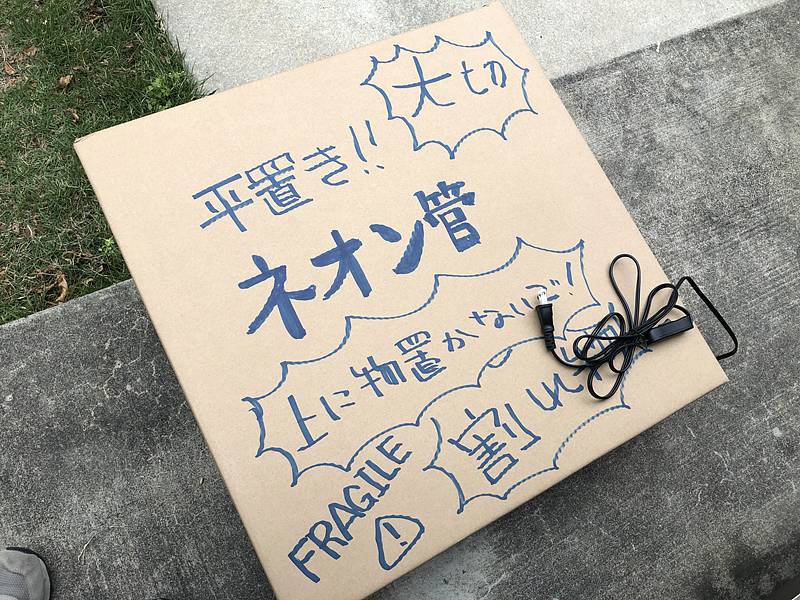 大切
平置き!!
ネオン管
上に物置かないで!
割れ物
FRAGILE